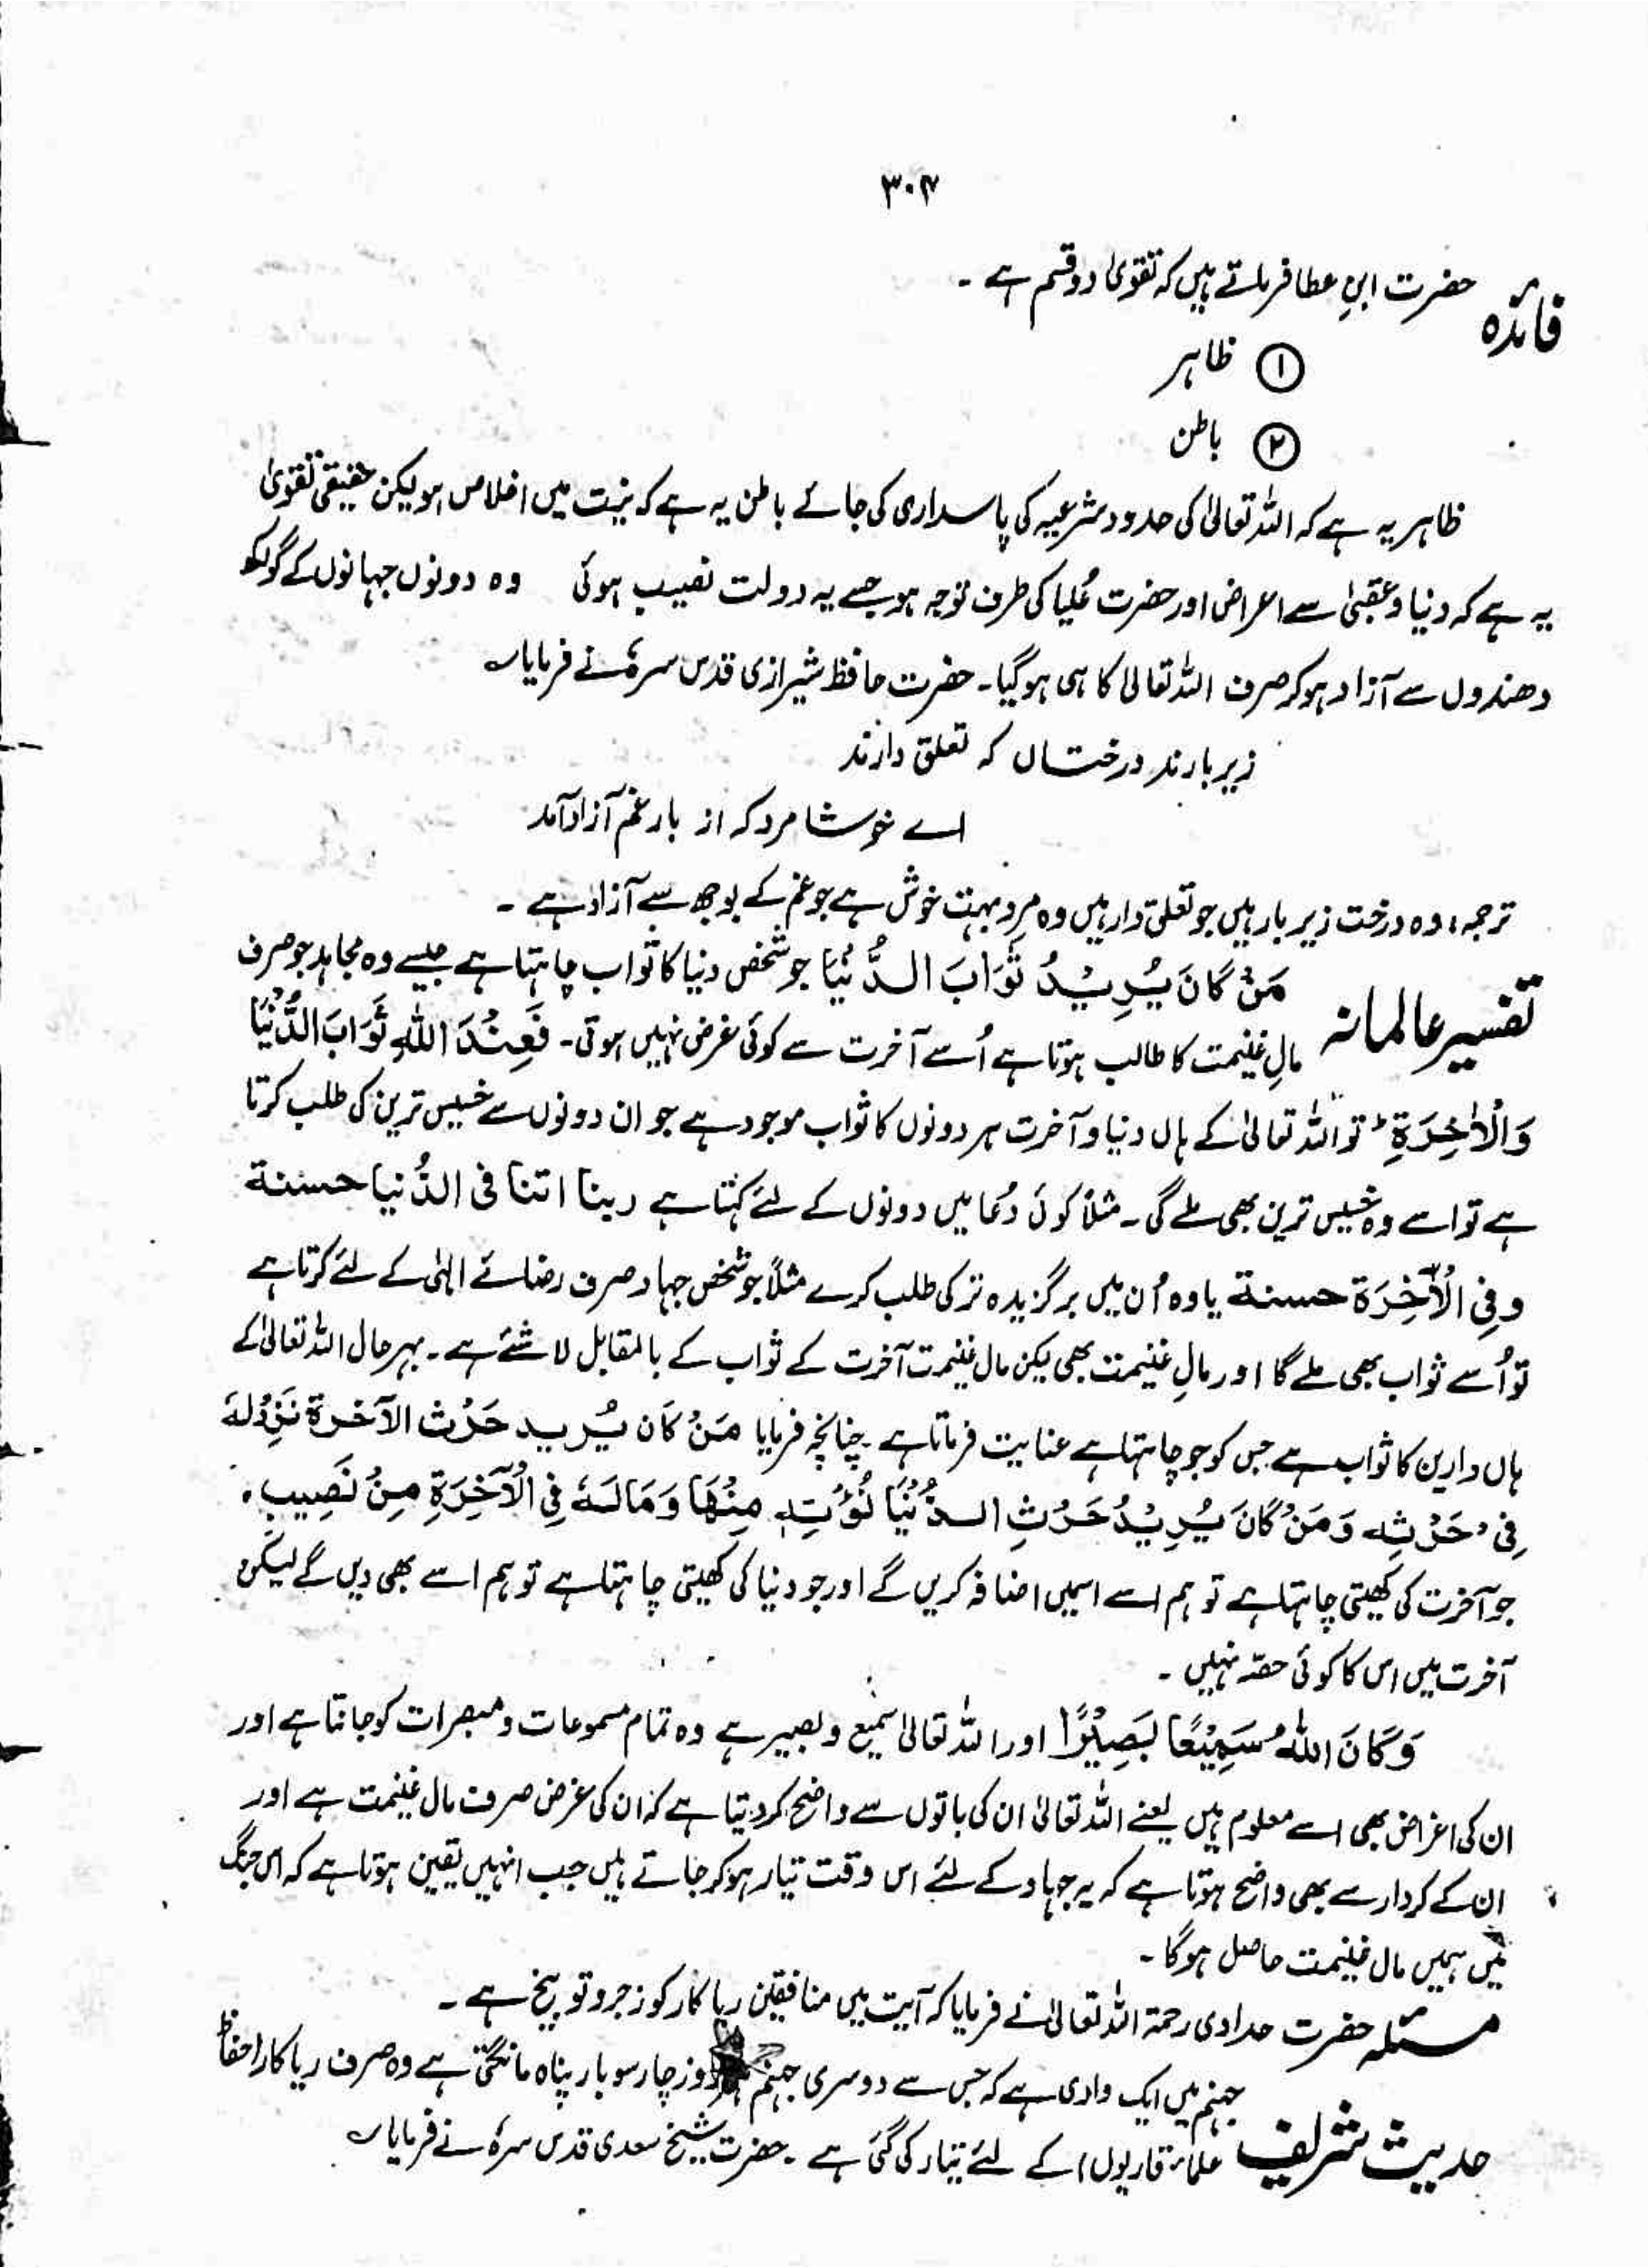 ۳۰۴
فائدہ حضرت ابنِ عطا فرماتے ہیں کہ تقویٰ دو قسم ہے ۔
① ظاہر
② باطن
ظاہر یہ ہے کہ اللہ تعالیٰ کی حدود شرعیہ کی پاسداری کی جائے باطن یہ ہے کہ نیت میں اخلاص ہو لیکن حقیقی تقویٰ
یہ ہے کہ دنیا و عقبیٰ سے اعراض اور حضرت عُلیا کی طرف توجہ ہو جسے یہ دولت نصیب ہوئی وہ دونوں جہانوں کے گورکھ
دھندوں سے آزاد ہو کر صرف اللہ تعالیٰ کا ہی ہو گیا ۔ حضرت حافظ شیرازی قدس سرہٗ نے فرمایا ؎
زیر بارند درختاں کہ تعلق دارند
اے خوشا مرد کہ از بار غم آزاد آمد
ترجمہ : وہ درخت زیر بار ہیں جو تعلق دار ہیں وہ مرد بہت خوش ہے جو غم کے بوجھ سے آزاد ہے ۔
تفسیر عالمانہ مَنْ كَانَ يُرِيْدُ ثَوَابَ الدُّنْيَا جو شخص دنیا کا ثواب چاہتا ہے جیسے وہ مجاہد جو صرف
مالِ غنیمت کا طالب ہوتا ہے اُسے آخرت سے کوئی غرض نہیں ہوتی ۔ فَعِنْدَ اللهِ ثَوَابَ الدُّنْيَا
وَالْاٰخِرَةِ ؕ تو اللہ تعالیٰ کے ہاں دنیا و آخرت ہر دونوں کا ثواب موجود ہے جو ان دونوں سے خسیس ترین کی طلب کرتا
ہے تو اسے وہ خسیس ترین بھی ملے گی ۔ مثلاً کوئی دُعا میں دونوں کے لئے کہتا ہے ربنا اتنا فی الدُّنیا حسنة
و فِی الْآخِرَة حسنة یا وہ اُن میں برگزیدہ تر کی طلب کرے مثلاً جو شخص جہاد صرف رضائے الہٰی کے لئے کرتا ہے
تو اُسے ثواب بھی ملے گا اور مالِ غنیمت بھی لیکن مال غنیمت آخرت کے ثواب کے بالمقابل لاشئے ہے ۔ بہرحال اللہ تعالیٰ کے
ہاں دارین کا ثواب ہے جس کو جو چاہتا ہے عنایت فرماتا ہے ۔ چنانچہ فرمایا مَنْ كَان يُريد حَرْث الآخرة نَزِدْ لهٗ
فِی حَرْثِه وَمَنْ كَانَ يُرِيْدُ حَرْثِ الدُّنْيَا نُؤْتِهٖ مِنْهَا وَمَالَهٗ فِی الْآخِرَةِ مِنْ نَصِيب ۔
جو آخرت کی کھیتی چاہتا ہے تو ہم اسے اسمیں اضافہ کریں گے اور جو دنیا کی کھیتی چاہتا ہے تو ہم اسے بھی دیں گے لیکن
آخرت میں اس کا کوئی حصّہ نہیں ۔
وَكَانَ اللهُ سَمِيْعًا بَصِيْرًا اور اللہ تعالیٰ سمیع و بصیر ہے وہ تمام مسموعات و مبصرات کو جانتا ہے اور
ان کی اغراض بھی اسے معلوم ہیں یعنے اللہ تعالیٰ ان کی باتوں سے واضح کر دیتا ہے کہ ان کی غرض صرف مال غنیمت ہے اور
ان کے کردار سے بھی واضح ہوتا ہے کہ یہ جہاد کے لئے اس وقت تیار ہو کر جاتے ہیں جب انہیں یقین ہوتا ہے کہ اس جنگ
میں ہمیں مال غنیمت حاصل ہوگا ۔
مسئلہ حضرت حدادی رحمۃ اللہ تعالیٰ نے فرمایا کہ آیت میں منافقین ریا کار کو زجر و توبیخ ہے ۔
حدیث شریف جہنم میں ایک وادی ہے کہ جس سے دوسری جہنم روز چار سو بار پناہ مانگتی ہے وہ صرف ریا کار (حفاظ
علماء قاریوں) کے لئے تیار کی گئی ہے ۔ حضرت شیخ سعدی قدس سرہٗ نے فرمایا ؎